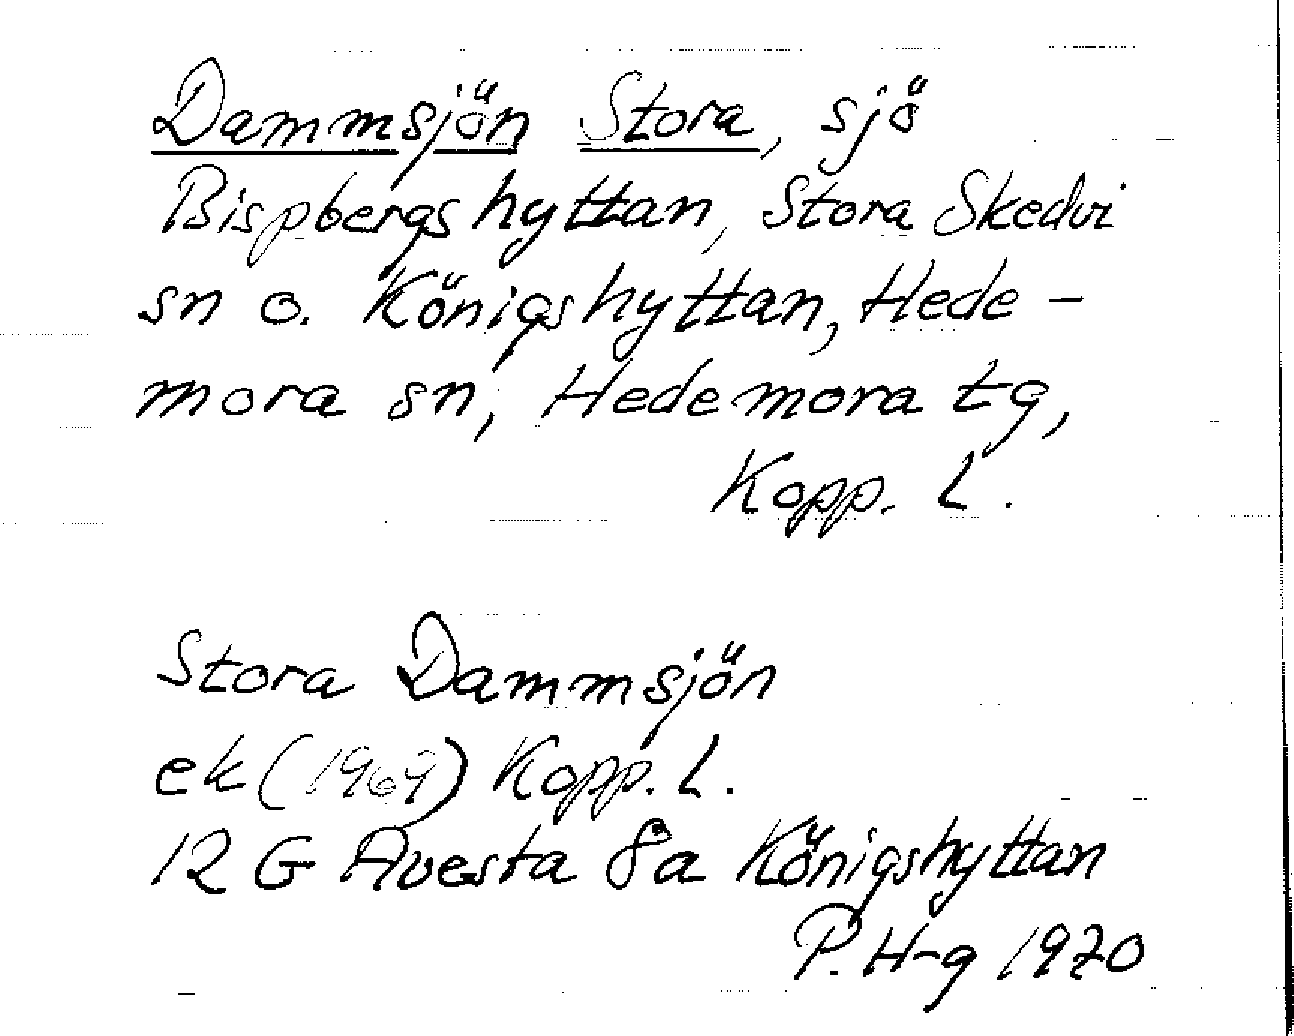 Dammsjön Stora, sjö
Bispbergshyttan, Stora Skedvi
sn o. Königshyttan, Hede-
mora sn, Hedemora tg,
Kopp. L.
Stora Dammsjön
ek (1969) Kopp. L.
12 G Avesta 8a Königshyttan
P. H-g 1970